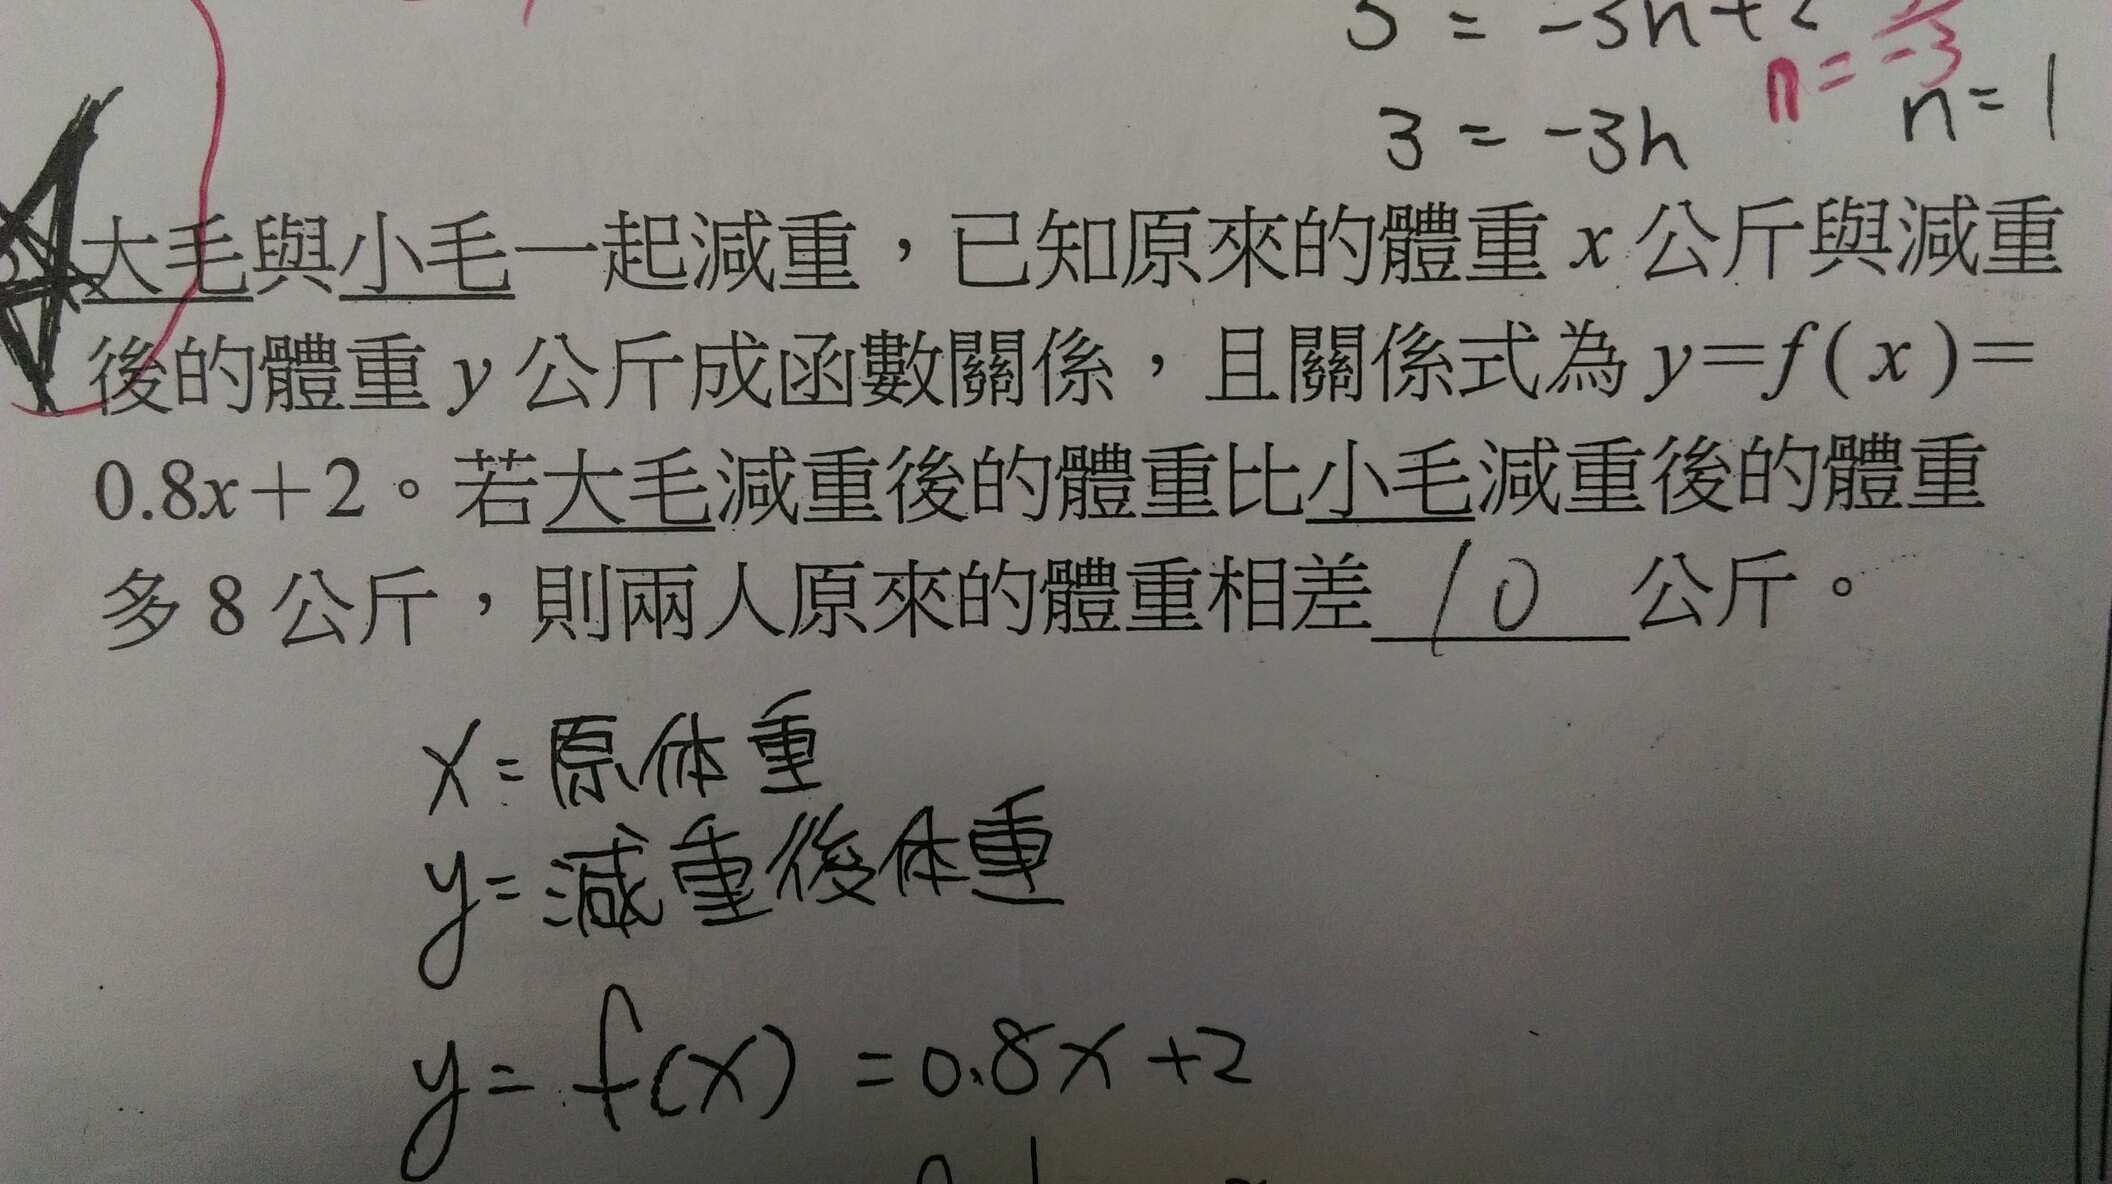 3 = -3n
n = -3
n = 1
大毛與小毛一起減重，已知原來的體重 x 公斤與減重
後的體重 y 公斤成函數關係，且關係式為 y＝f ( x )＝
0.8x＋2。若大毛減重後的體重比小毛減重後的體重
多 8 公斤，則兩人原來的體重相差 10 公斤。
x = 原体重
y = 減重後体重
y = f(x) = 0.8x + 2